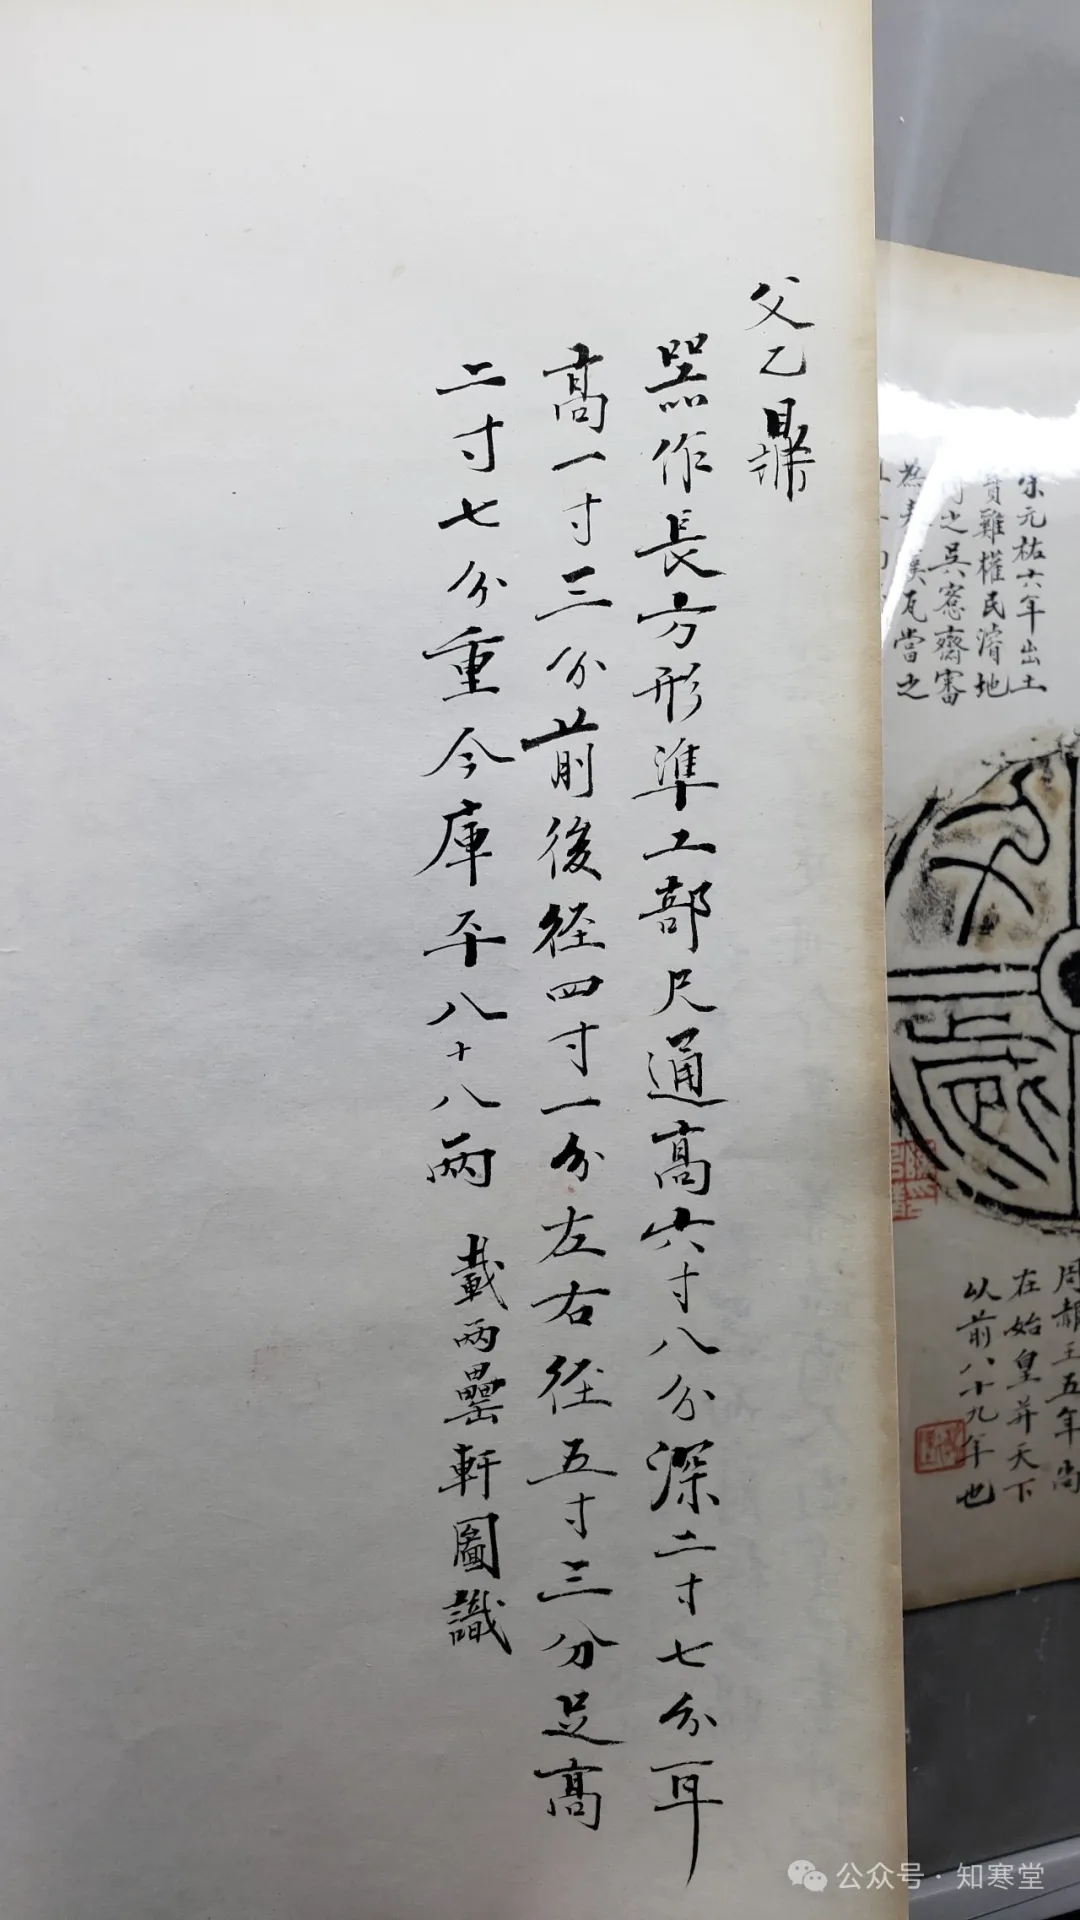 父乙鼎
器作長方形準工部尺通高六寸八分深二寸七分耳
高一寸三分前後径四寸一分左右径五寸三分足高
二寸七分重今庫平八十八兩 載兩罍軒圖識
宋元祐六年出土
寶雞權民濬地
之吳愙齋審
為 漢瓦當之
周赧王五年尚
在始皇并天下
以前八十九年也
公众号·知寒堂